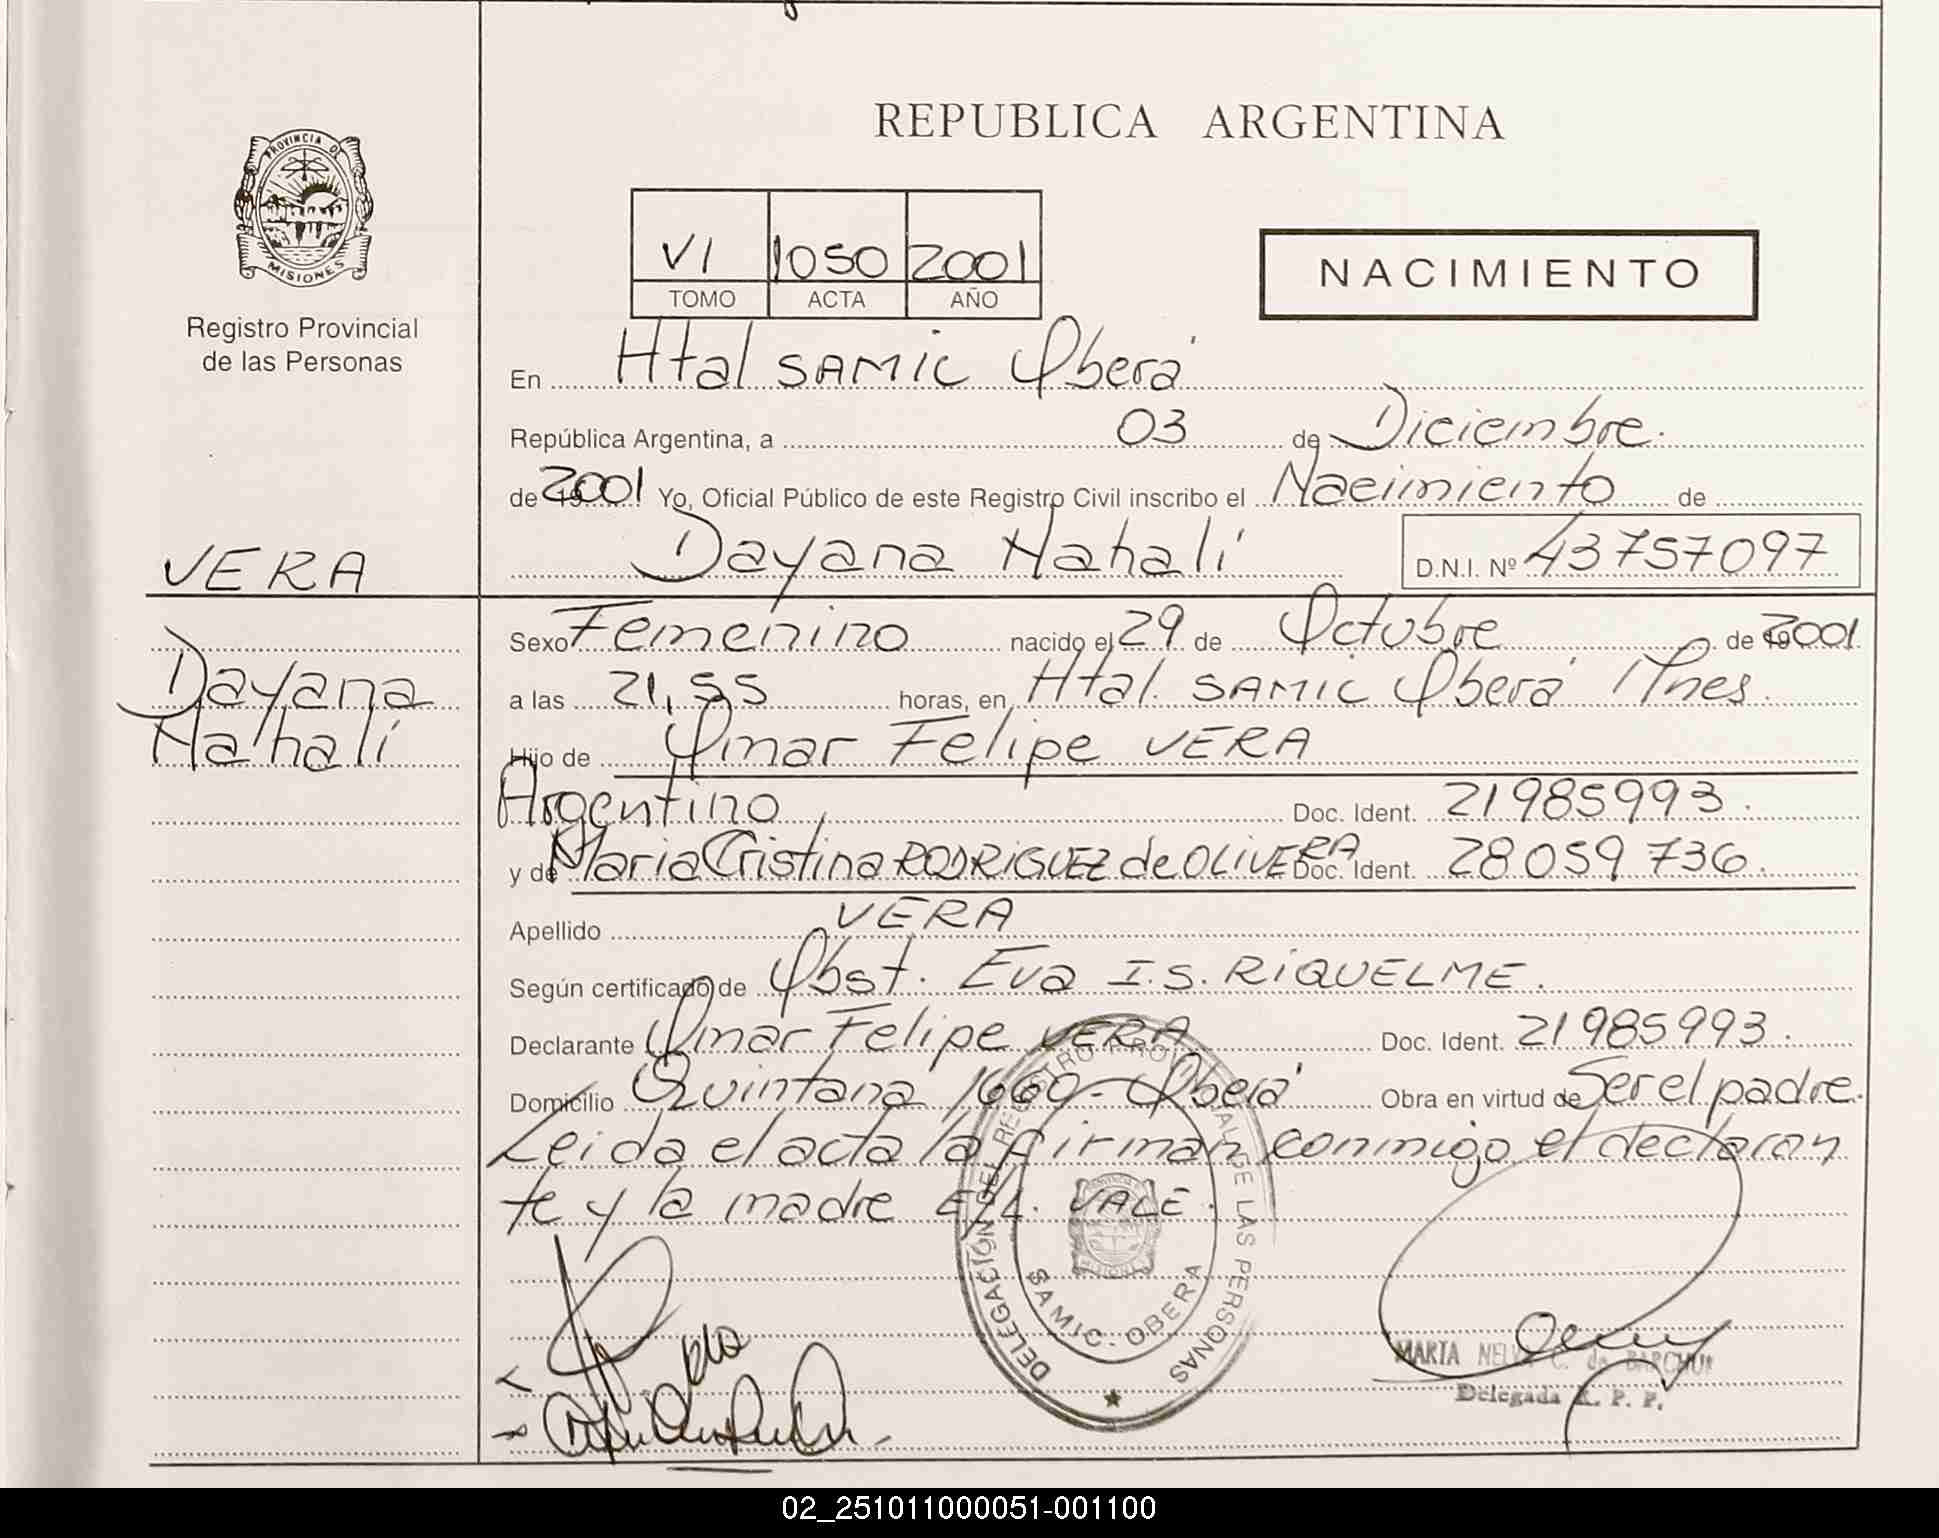 REPUBLICA ARGENTINA
PROVINCIA DE MISIONES
Registro Provincial
de las Personas
VI 1050 2001
TOMO ACTA AÑO
NACIMIENTO
En Htal SAMIC Oberá
República Argentina, a 03 de Diciembre.
de 2001 Yo, Oficial Público de este Registro Civil inscribo el Nacimiento de
VERA
Dayana Nahalí D.N.I. Nº 43757097
Dayana
Nahalí
Sexo Femenino nacido el 29 de Octubre de 2001
a las 21,55 horas, en Htal. SAMIC Oberá Mnes.
Hijo de Omar Felipe VERA
Argentino Doc. Ident. 21985993.
y de Maria Cristina RODRIGUEZ de OLIVERA Doc. Ident. 28059736.
Apellido VERA
Según certificado de Obst. Eva I.S. RIQUELME.
Declarante Omar Felipe VERA Doc. Ident. 21985993.
Domicilio Quintana 1660 - Oberá Obra en virtud de Ser el padre.
Leida el acta la firman conmigo el declaran
te y la madre E/L. VALE.
DELEGACIÓN DEL REGISTRO PROVINCIAL DE LAS PERSONAS
SAMIC - OBERA
MARIA NELVA C. de
Delegada R. P. P.
02_251011000051-001100